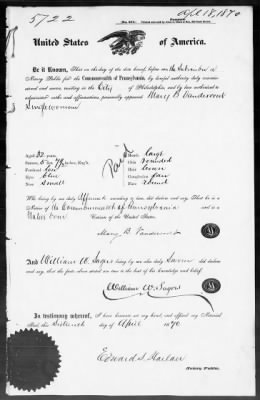 5722
April 18, 1870
United States of America.
Be it Known, That on this day of the date hereof, before me the Subscriber a
Notary Public for the Commonwealth of Pennsylvania, by lawful authority duly commissioned
and sworn, residing in the City of Philadelphia, and by law authorized to
administer oaths and affirmations, personally appeared Mary B Vandervort
Singlewoman
Aged 32 years
Stature, 5 feet
Forehead low
Eyes blue
Nose small
Paid
Mouth large
Chin rounded
Hair brown
Complexion fair
Face round
Who being by me duly Affirmed according to law, did declare and say, That he is a
Native of the Commonwealth of Pennsylvania and is a
Native born Citizen of the United States.
Mary B. Vandervort
And William W. Sagers being by me also duly Sworn did declare
and say, that the facts above stated are true to the best of his knowledge and belief.
William W. Sagers
In testimony whereof, I have hereunto set my hand, and affixed my Notarial
Seal this Sixteenth day of April 1870.
Edward S. Harlan
Notary Public.